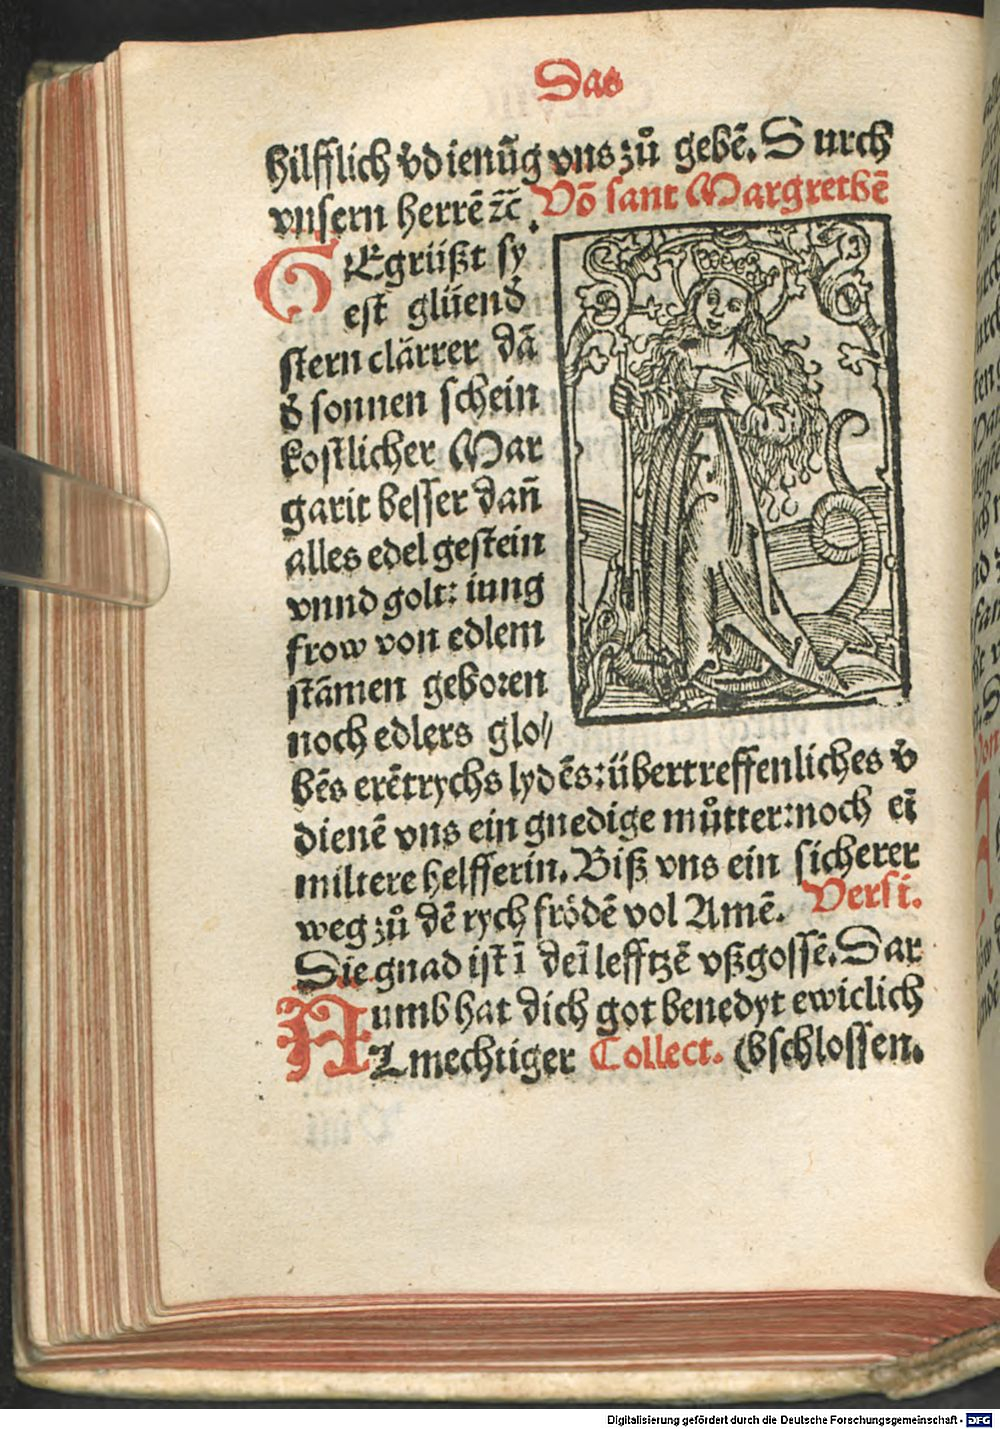 Das
hilfflich v̄dienūg vns zů gebē. Durch
vnsern herrē ⁊c̄. Vō sant Margrethē
GEgrüßt sy
est glüend̄
stern clārrer dā
d̄ sonnen schein
kostlicher Mar
garit besser dan̄
alles edel gestein
vnnd golt: iung
frow von edlem
stāmen geboren
noch edlers glo//
bēs erētrychs lydēs: übertreffenliches v̄
dienē vns ein gnedige můtter: noch eī
miltere helfferin. Biß vns ein sicherer
weg zů dē rych frödē vol Amē. Versi.
Die gnad ist ī deī lefftzē vßgossē. Dar
umb hat dich got benedyt ewiclich
ALmechtiger Collect. (bschlossen.
Digitalisierung gefördert durch die Deutsche Forschungsgemeinschaft - DFG